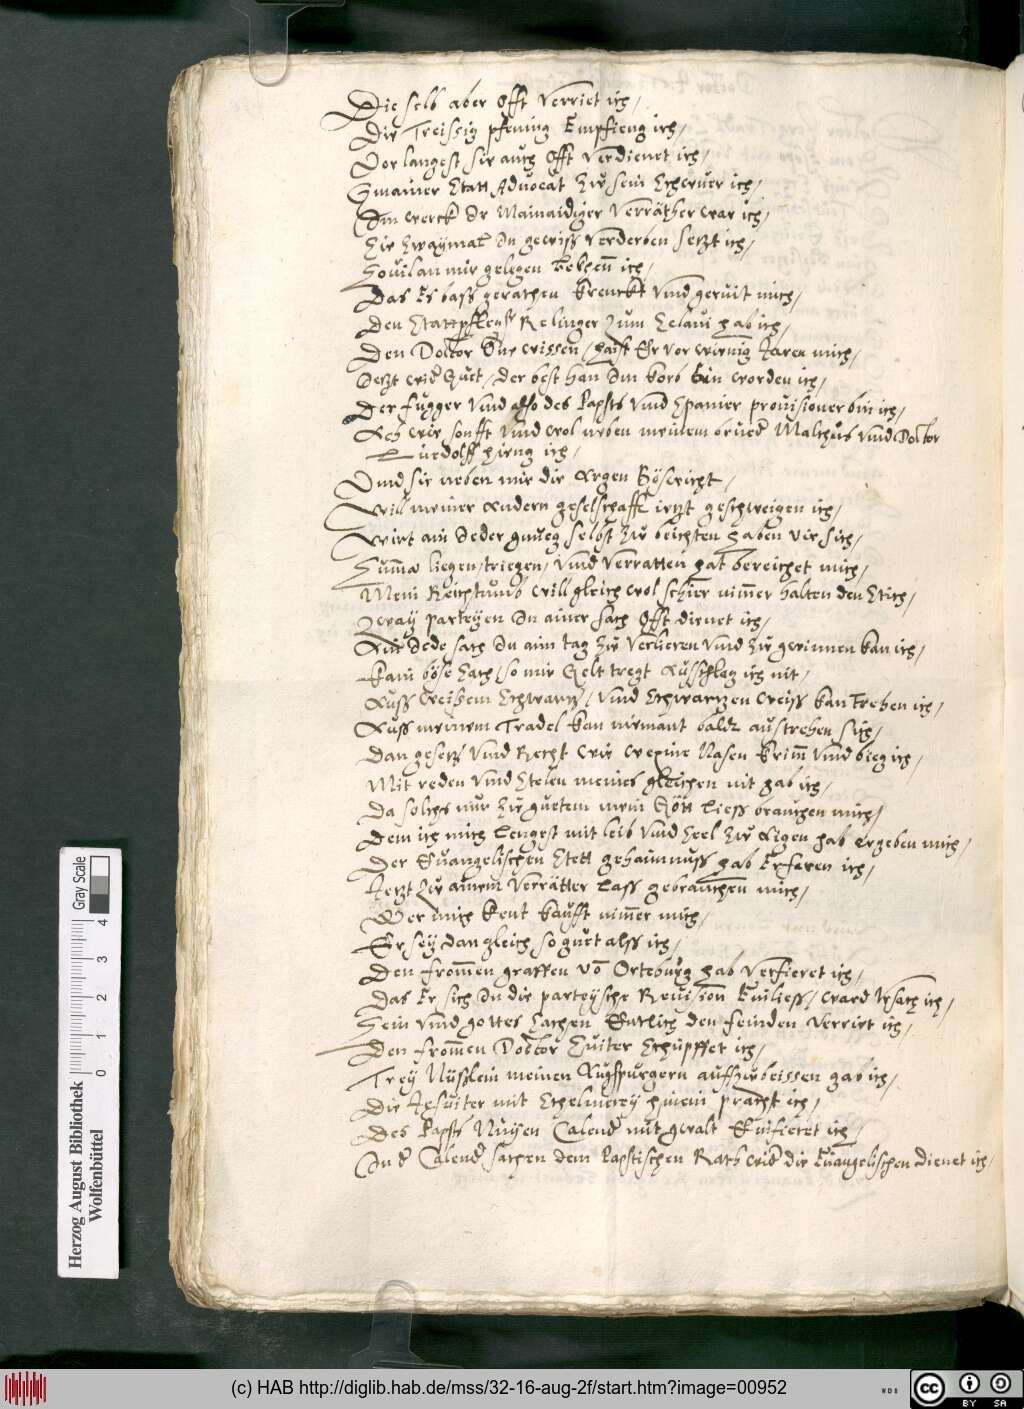 Die selb aber Offt Verriet ich,
Die Treissig pfening Empfieng ich,
Vor langest sie auch Offt Verdienet ich,
Gmainer Statt Advocat Zu sein Schwuer ich,
Im werckh Ir Mainaidiger Verräther war ich,
Sie Zwaymal In gewiss Verderben setzt ich,
Sovil an mir gelegen bekhenn ich,
Das Es bass gerathen krenckt Vnnd gereuit mich,
Den Stattpfleger Relinger Zum haben ich,
Den Doctor Im wissen, haist Er vor wenig Jaren mich,
Jetzt wider Guet, der best han Im korb Bin worden ich,
Der Fugger Vnd also des Papsts Vnnd Spanier provisioner bin ich,
Ach wie sonfft Vnnd wol neben meinem brueder Malchus Vnnd Doctor
Luedolff hieng ich,
Vnnd sie neben mir die Argen Bösewicht,
Will meiner Andern geselschafft ietzt geschweigen ich,
Wirt ain Ieder gnueg selbst Zu beichten haben vir sich,
Summa liegen, triegen, Vnnd Verratten hat bereichet mich,
Mein Reichtumb will gleich wol schier nimmer halten den Stich,
Zway parteyen In ainer sach Offt dienet ich,
Ain Iede sach In aim tag Zu Verlieren Vnnd Zu gewinnen kan ich,
Kain böse Sach, so mir Gelt tregt Ausschlag ich nit,
Auss Weissem Schwartz, Vnnd Schwartzen Weiss kan Trehen ich,
Auss meinem Tradel kan niemant baldt austrehen sich,
Dan gesetz Vnnd Recht Wie Wexine Nasen krimm Vnnd bieg ich,
Mit reden Vnnd Stelen meines gleichen nit hab ich,
Da solchs nur Zu guetem mein Gött Liess brauchen mich,
Dem ich mich Lengest mit leib Vnnd Seel Zu Aigen hab ergeben mich,
Der Evangelischen Stett gehaimnuss hab Erfaren ich,
Jetzt Zu ainem Verrätter Lass gebrauchen mich,
Wer mich kent kaufft nimmer mich,
Er sey dan gleich so guet alss ich,
Den frommen graffen von Orteburg hab Verfieret ich,
Das Er sich In die parteysche Revision Einliess, ward Ursach ich,
Sein Vnnd gottes Sachen Entlich den feinden Verriet ich,
Den frommen Doctor Zuiter Schupffet ich,
Trey Nüsslein meinen Augspurgern auffzubeissen gab ich,
Die Jesuiter mit Schelmerey hinein pracht ich,
Des Papsts Nuyen Calender mit gwalt Einfieret ich,
In der Calender sachen dem Papstischen Rath wider die Euangelischen dienet ich,
Herzog August Bibliothek
Wolfenbüttel
0 1 2 3 4
Gray Scale
(c) HAB http://diglib.hab.de/mss/32-16-aug-2f/start.htm?image=00952
WDB
cc BY SA